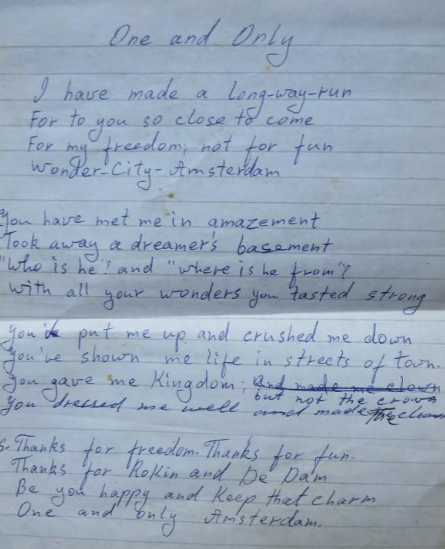 One and Only
I have made a long-way-run
For to you so close to come
For my freedom, not for fun
Wonder-City-Amsterdam
You have met me in amazement
Took away a dreamer's basement
"Who is he"? and "where is he from"?
With all your wonders you tasted strong
put me up and crushed me down
You've shown me life in streets of town.
You gave me Kingdom; And made me clown
but not the crown
You dressed me well and made the clown
S. Thanks for freedom. Thanks for fun.
Thanks for Rokin and De Dam
Be you happy and Keep that charm
One and only Amsterdam.